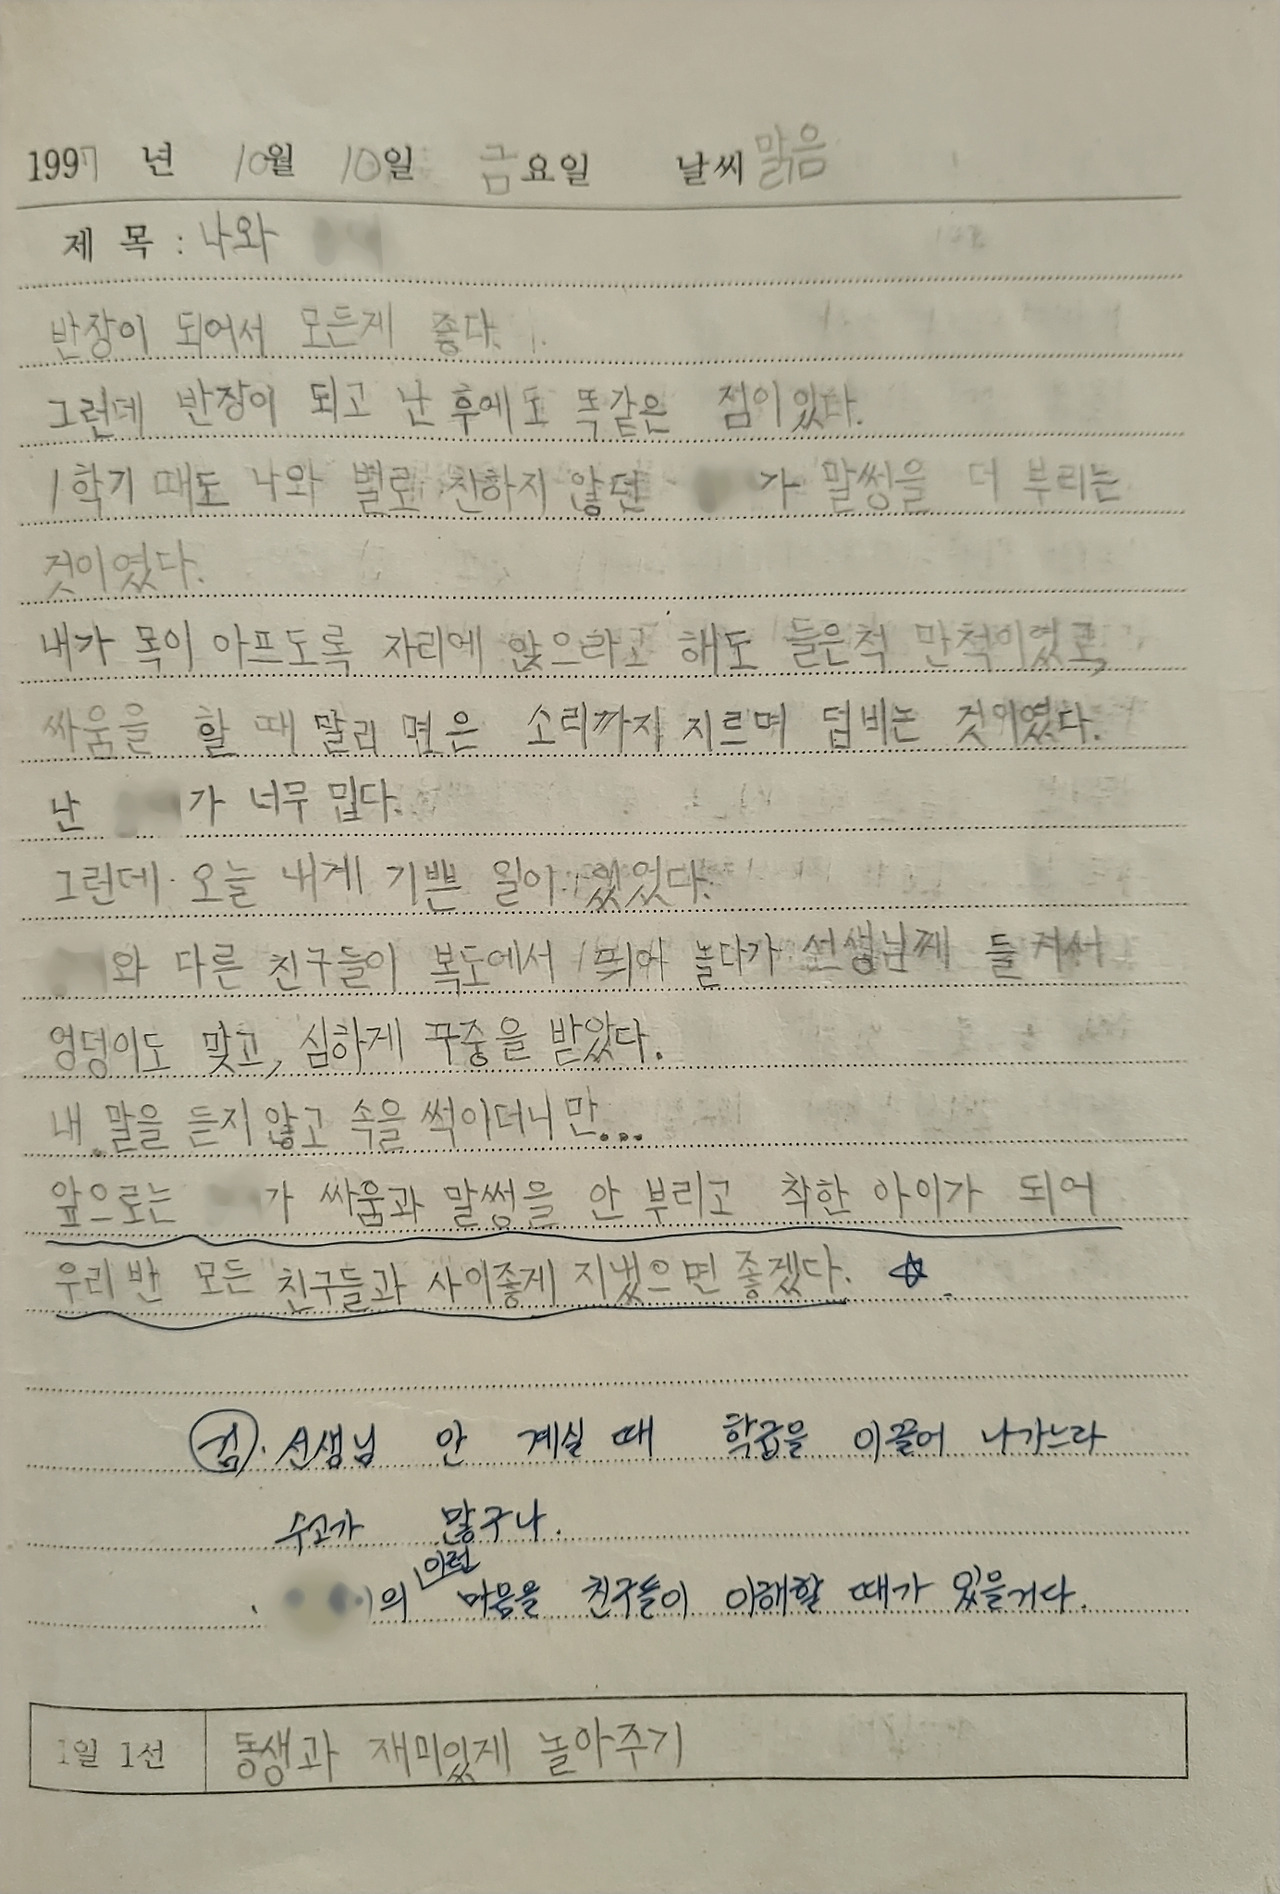 1997 년 10월 10일 금요일 날씨 맑음
제 목 : 나와
반장이 되어서 모든게 좋다.
그런데 반장이 되고 난 후에도 똑같은 점이 있다.
1학기 때도 나와 별로 친하지 않던 가 말썽을 더 부리는
것이였다.
내가 목이 아프도록 자리에 앉으라고 해도 들은척 만척이였고,
싸움을 할 때 말리면은 소리까지 지르며 덤비는 것이였다.
난 가 너무 밉다.
그런데 오늘 내게 기쁜 일이 있었다.
와 다른 친구들이 복도에서 뛰어 놀다가 선생님께 들켜서
엉덩이도 맞고, 심하게 꾸중을 받았다.
내 말을 듣지 않고 속을 썩이더니만...
앞으로는 가 싸움과 말썽을 안 부리고 착한 아이가 되어
우리 반 모든 친구들과 사이좋게 지냈으면 좋겠다. ☆
검. 선생님 안 계실 때 학급을 이끌어 나가느라
수고가 많구나.
의 이런 마음을 친구들이 이해할 때가 있을거다.
1일 1선 동생과 재미있게 놀아주기